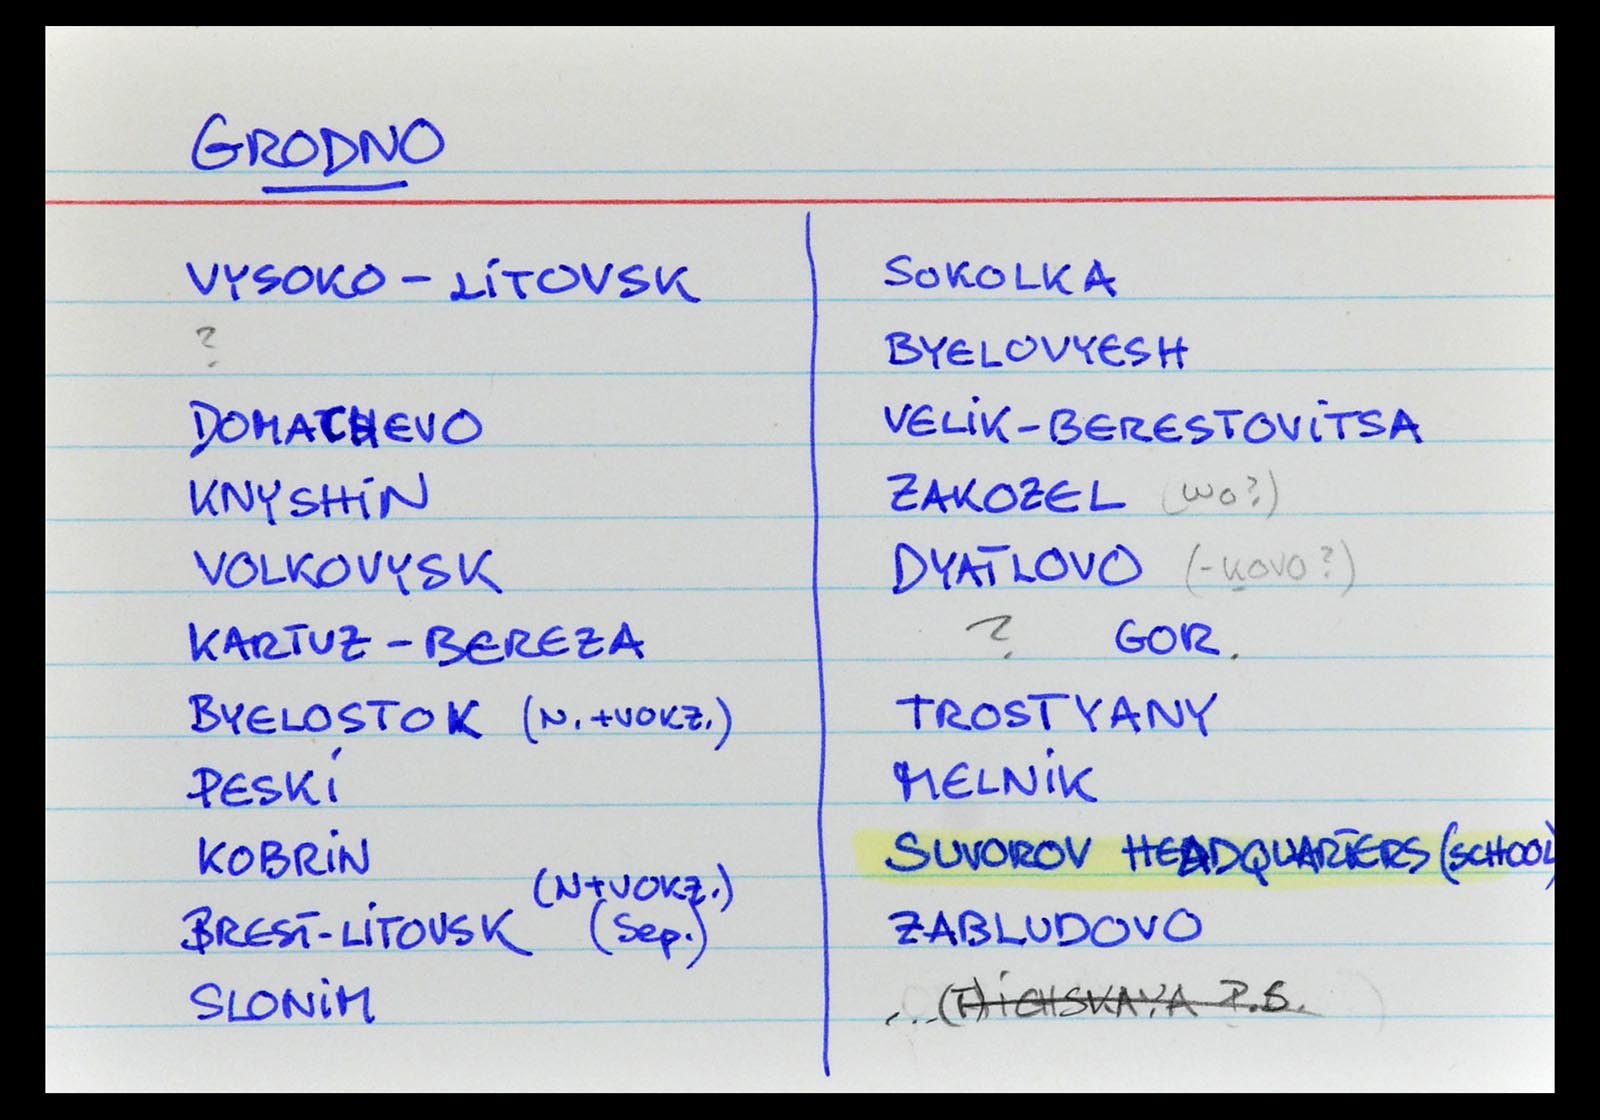 GRODNO
VYSOKO-LITOVSK
?
DOMATCHEVO
KNYSHIN
VOLKOVYSK
KARTUZ-BEREZA
BYELOSTOK (N.+VOKZ.)
PESKI
KOBRIN
(N+VOKZ.)
BREST-LITOVSK (Sep.)
SLONIM
SOKOLKA
BYELOVYESH
VELIK-BERESTOVITSA
ZAKOZEL (wo?)
DYATLOVO (-KOVO?)
? GOR.
TROSTYANY
MELNIK
SUVOROV HEADQUARTERS (SCHOOL)
ZABLUDOVO